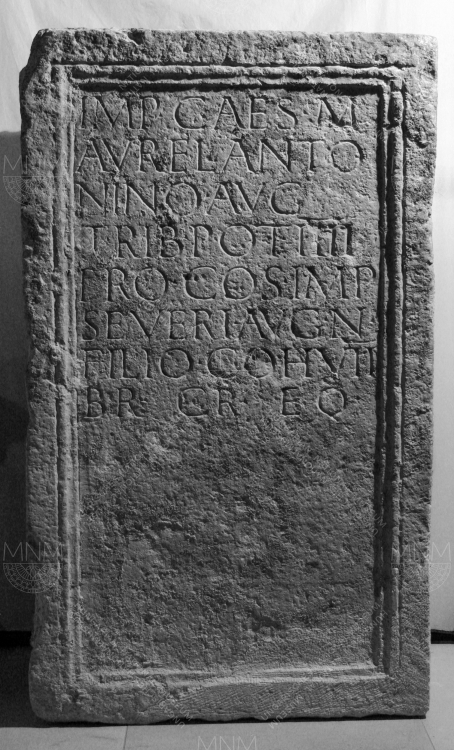 IMP CAES M
AVREL ANTO
NINO AVG
TRIB POT IIII
PRO COS IMP
SEVERI AVG N
FILIO COH VII
BR CR EQ
MNM
MNM
MNM
MNM
MNM